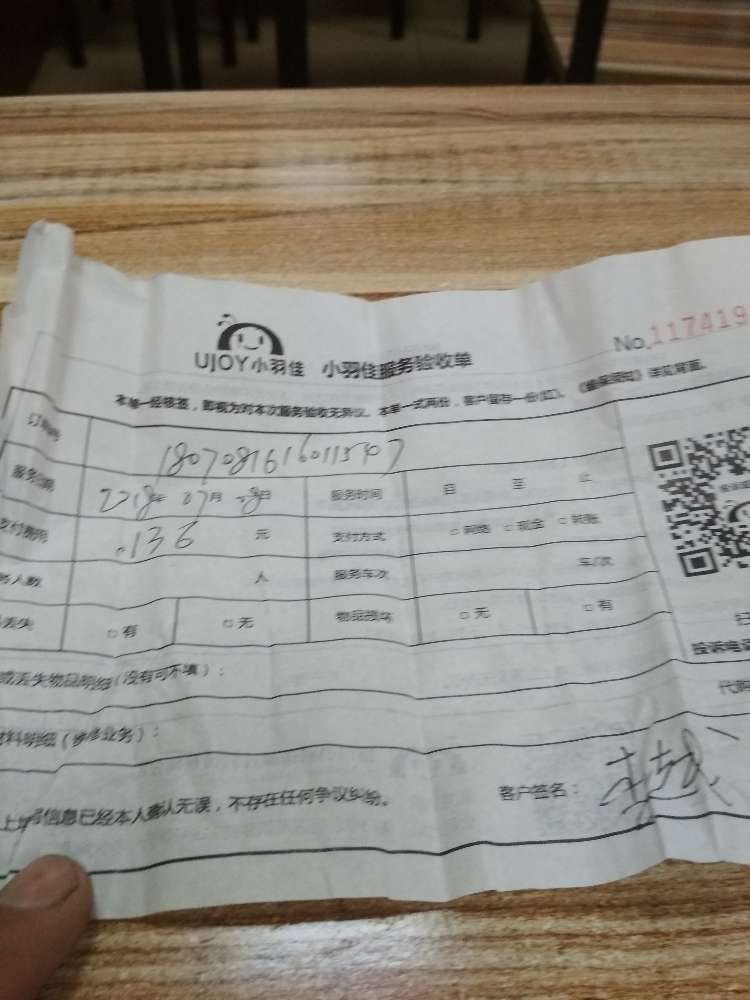 No.117419
UJOY小羽佳 小羽佳服务验收单
本单一经核签，即视为对本次服务验收无异议。本单一式两份，客户留存一份(红)。《验保须知》详见背面。
订单号
服务日期 2018年 07月 08日 服务时间 自 至 止
支付费用 136 元 支付方式 □网络 □现金 □转账
务人数 人 服务车次 车/次
丢失 □有 □无 物品损坏 □无 □有
扫
投诉电话
或丢失物品明细（没有可不填）：
代购
材料明细（维修业务）：
上述信息已经本人确认无误，不存在任何争议纠纷。 客户签名：